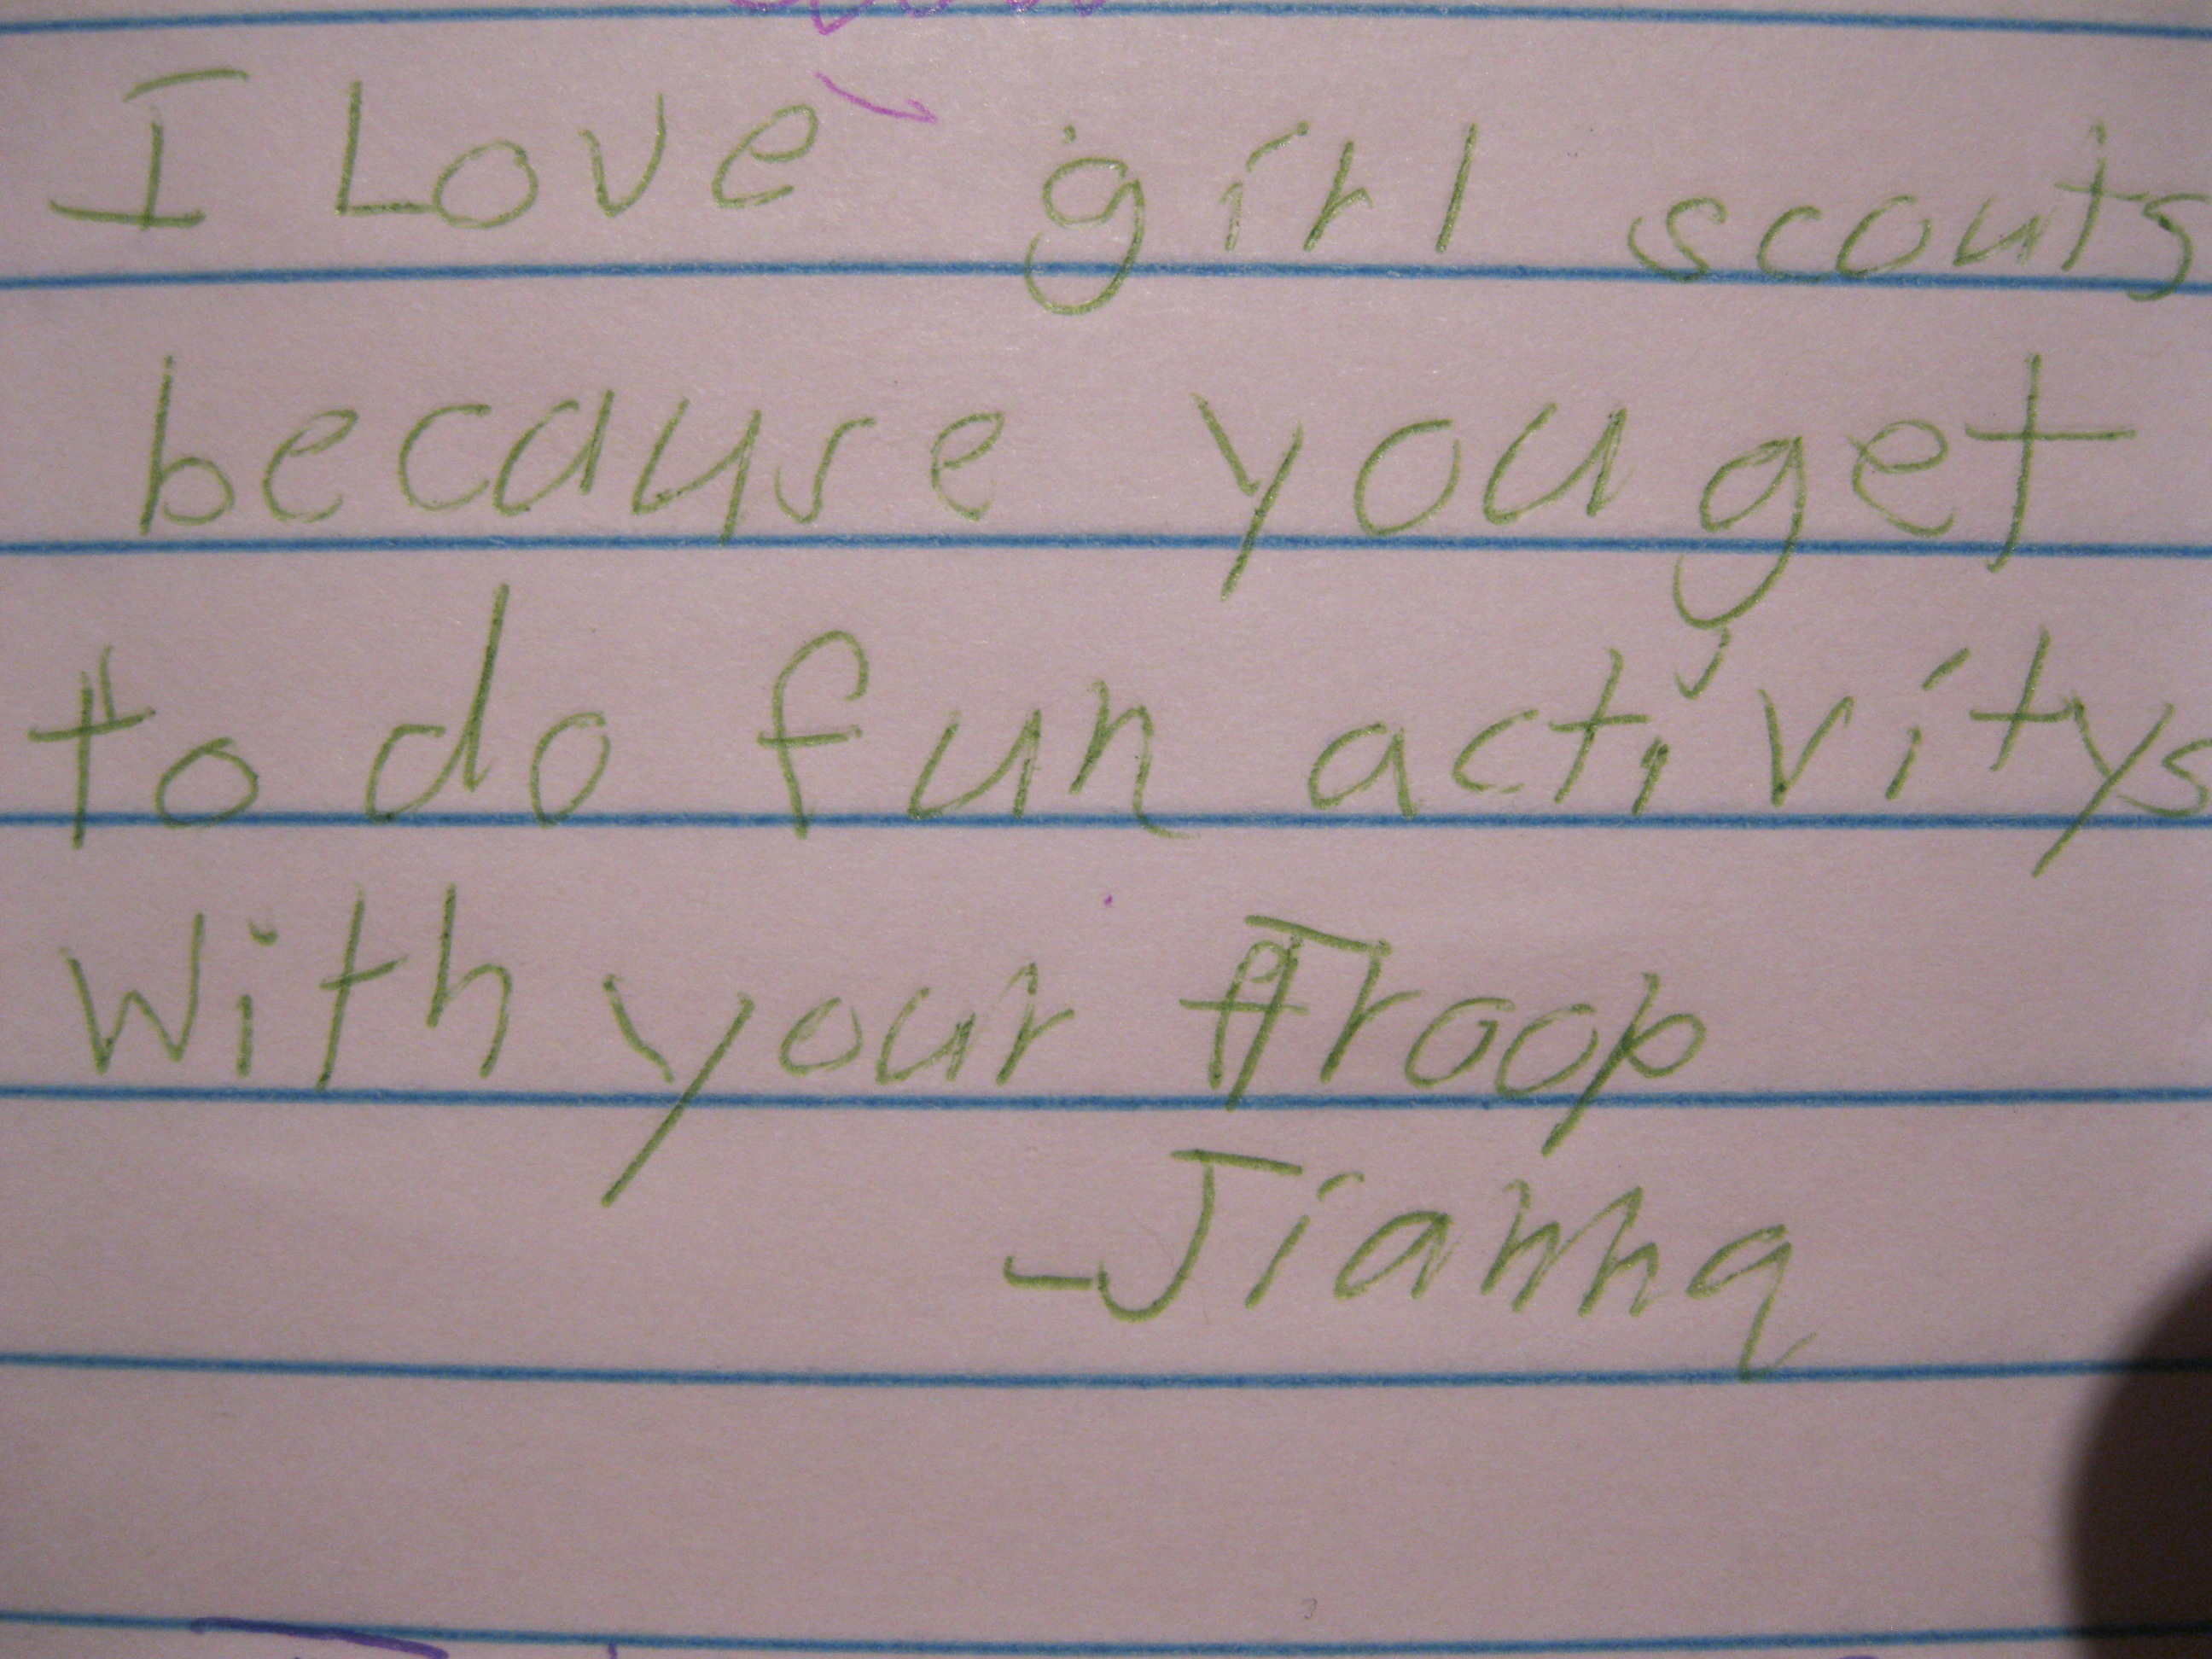 I Love girl scouts
because you get
to do fun activitys
with your Troop
-Jianna